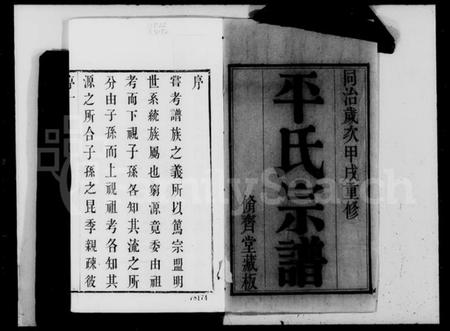 同治歲次甲戌重修
平氏宗譜
脩齊堂藏板
序
嘗考譜族之義所以篤宗盟明
世系統族屬也窮源竟委由祖
考而下視子孫各知其流之所
分由子孫而上視祖考各知其
源之所合子孫之昆季親疎彼
序 一